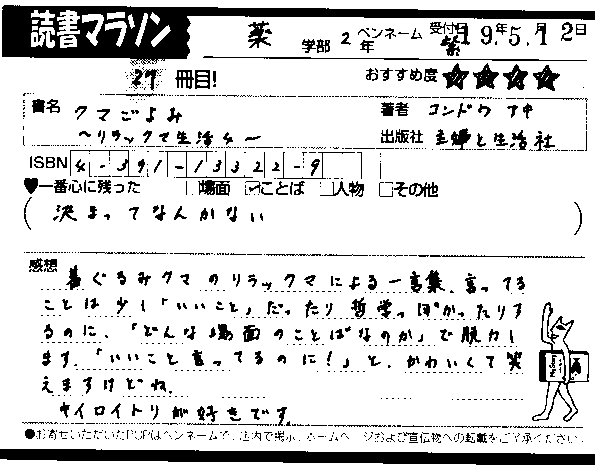 読書マラソン 薬 学部 2年 ペンネーム 紫 受付日 19年5月12日
27 冊目! おすすめ度 ★★★★
書名 クマごよみ 著者 コンドウ アキ
~リラックマ生活4~ 出版社 主婦と生活社
ISBN 4-391-13322-9
♥一番心に残った □場面 ☑ことば □人物 □その他
(決まってなんかない)
感想 着ぐるみクマのリラックマによる一言集。言ってる
ことは少し「いいこと」だったり哲学っぽかったりす
るのに、「どんな場面のことばなのか」で脱力し
ます。「いいこと言ってるのに!」と、かわいくて笑
えますけどね。
キイロイトリが好きです。
●お寄せいただいたPOPはペンネームで、店内で掲示、ホームページおよび宣伝物への転載をご了承ください。